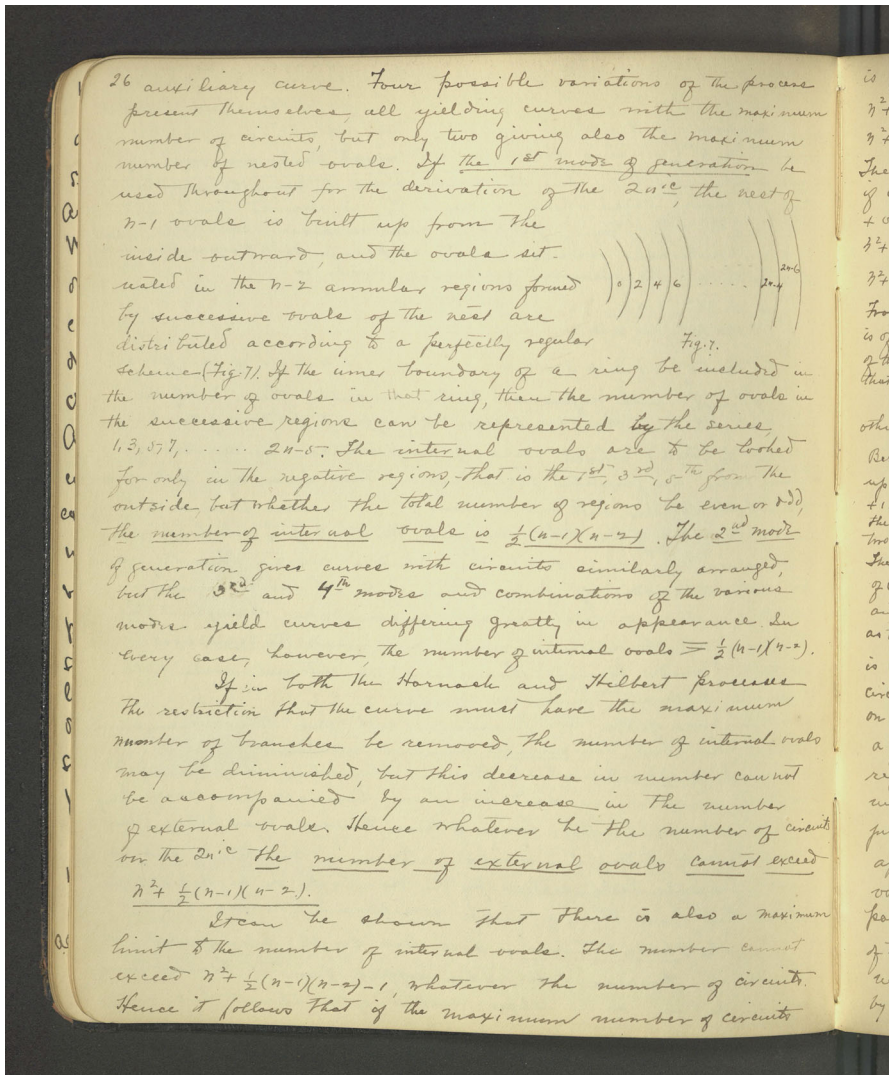 26 auxiliary curve. Four possible variations of the process
present themselves, all yielding curves with the maximum
number of circuits, but only two giving also the maximum
number of nested ovals. If the 1st mode of generation be
used throughout for the derivation of the 2n ic, the nest of
n-1 ovals is built up from the
inside outward, and the ovals sit-
uated in the n-2 annular regions formed
by successive ovals of the nest are
distributed according to a perfectly regular
0 2 4 6 ...... 2n-4 2n-6
Fig. 7.
scheme (Fig. 7). If the inner boundary of a ring be included in
the number of ovals in that ring, then the number of ovals in
the successive regions can be represented by the series,
1, 3, 5, 7, ..... 2n-5. The internal ovals are to be looked
for only in the negative regions, that is the 1st, 3rd, 5th from the
outside, but whether the total number of regions be even or odd,
the number of internal ovals is ½(n-1)(n-2). The 2nd mode
of generation gives curves with circuits similarly arranged,
but the 3rd and 4th modes and combinations of the various
modes yield curves differing greatly in appearance. In
every case, however, the number of internal ovals ≥ ½(n-1)(n-2).
If in both the Harnack and Hilbert processes
the restriction that the curve must have the maximum
number of branches be removed, the number of internal ovals
may be diminished, but this decrease in number can not
be accompanied by an increase in the number
of external ovals. Hence whatever be the number of circuits
on the 2n ic the number of external ovals cannot exceed
n²+ ½(n-1)(n-2).
It can be shown that there is also a maximum
limit to the number of internal ovals. The number cannot
exceed n²+ ½(n-1)(n-2)-1, whatever the number of circuits.
Hence it follows that if the maximum number of circuits